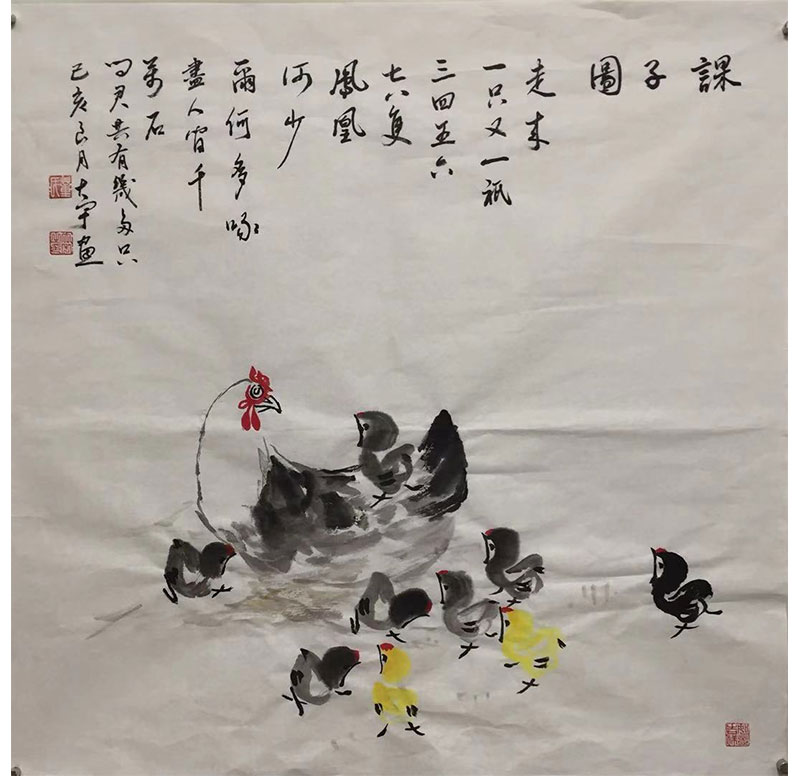 課子圖
走来
一只又一祇
三四五六
七八隻
鳳凰
何少
爾何多啄
盡人间千
萬石
问君共有幾多只
己亥良月大宇画